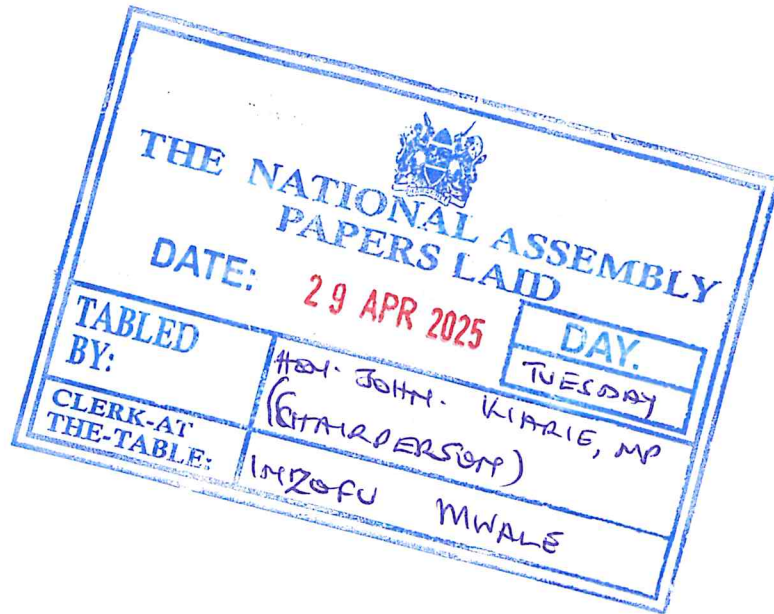 THE NATIONAL ASSEMBLY
PAPERS LAID
DATE: 29 APR 2025
DAY.
TUESDAY
TABLED
BY:
HON. JOHN. KIARIE, MP
(CHAIRPERSON)
CLERK-AT
THE-TABLE:
INZOFU MWALE